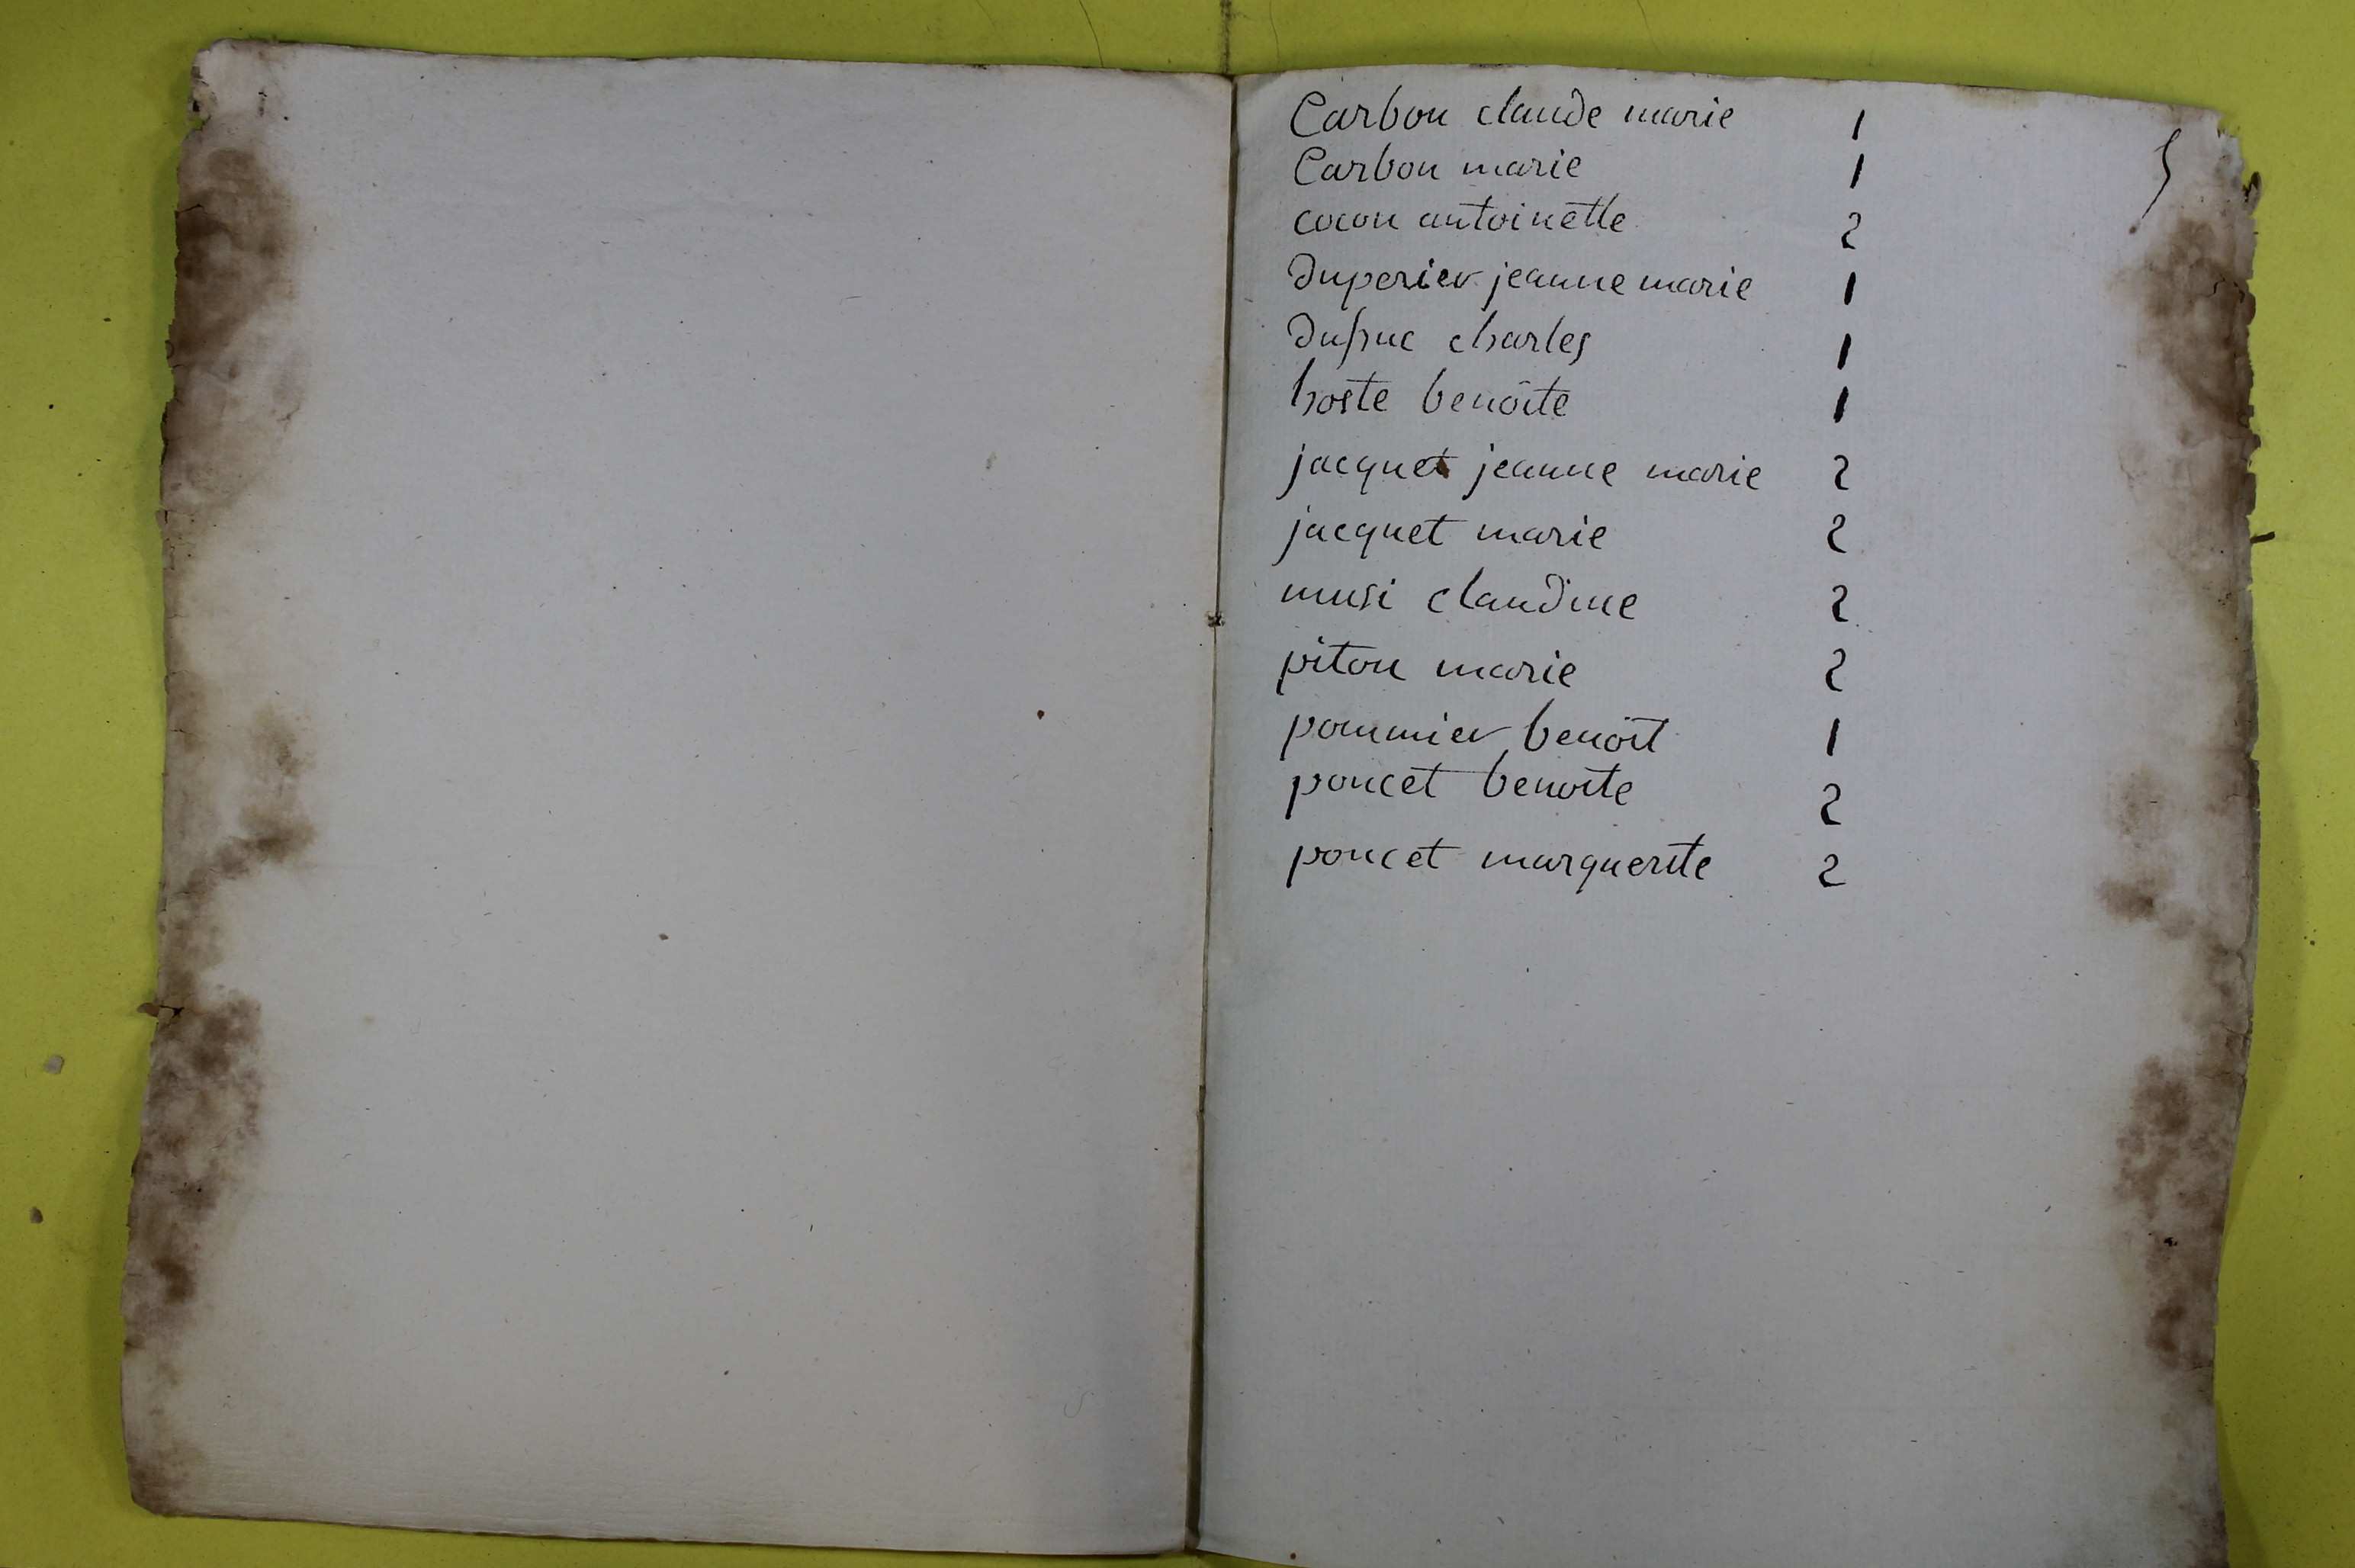 Carbon claude marie 1
Carbon marie 1
cocon antoinette 2
duperier jeanne marie 1
dupuc charles 1
hoste benoîte 1
jacquet jeanne marie 2
jacquet marie 2
musi claudine 2
piton marie 2
pommier benoît 1
poncet benoite 2
poncet marguerite 2